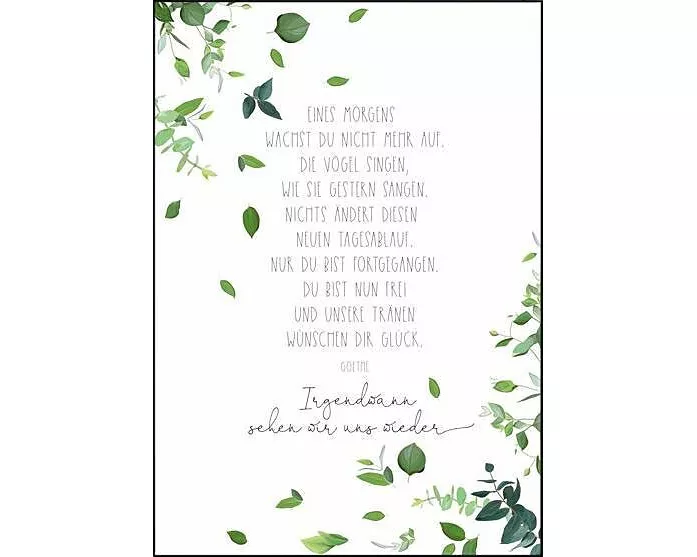 EINES MORGENS
WACHST DU NICHT MEHR AUF.
DIE VÖGEL SINGEN,
WIE SIE GESTERN SANGEN.
NICHTS ÄNDERT DIESEN
NEUEN TAGESABLAUF.
NUR DU BIST FORTGEGANGEN.
DU BIST NUN FREI
UND UNSERE TRÄNEN
WÜNSCHEN DIR GLÜCK.
GOETHE
Irgendwann
sehen wir uns wieder